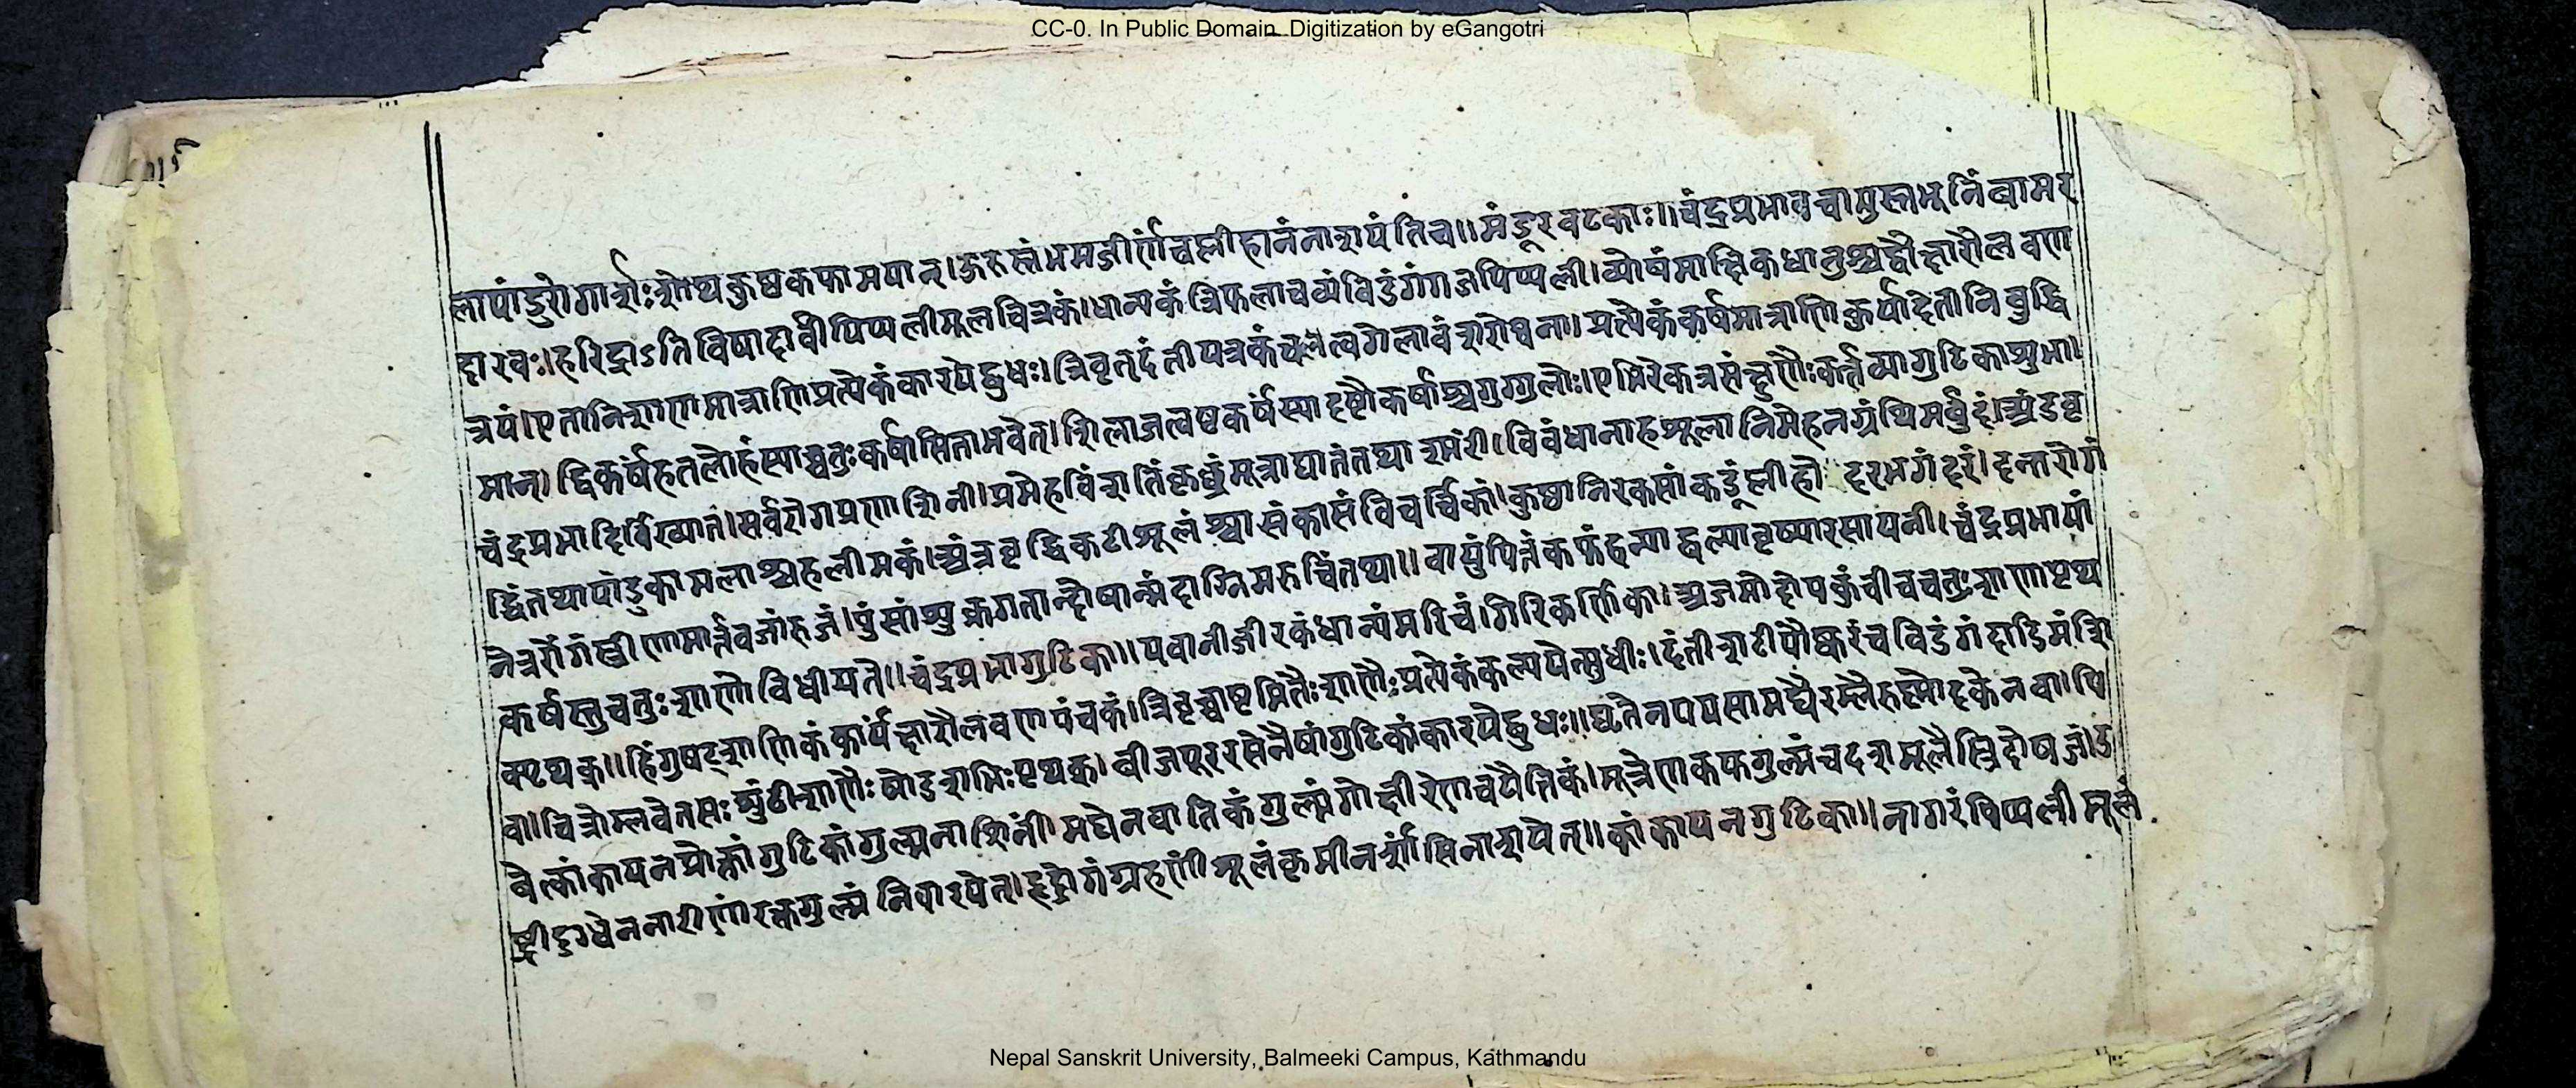 CC-0. In Public Domain. Digitization by eGangotri
लापांडुरोगार्शःशोथकुष्ठकफामयान्।ऊरुस्तंभमजीर्णंचप्लीहानंनाशयंतिच॥मंडूरवटकाः॥चंद्रप्रभावचामुस्ताभूनिंबामर
दारवः।हरिद्राऽतिविषादार्वीपिप्पलीमूलचित्रकं।धान्यकंत्रिफलाचव्यंविडंगंगजपिप्पली।व्योषंमाक्षिकधातुश्चद्वौक्षारौलवण
त्रयं।एतानिशाणमात्राणिप्रत्येकंकारयेद्बुधः।त्रिवृतदंतीपत्रकंच त्वगेलावंशरोचना।प्रत्येकंकर्षमात्राणिकुर्यादेतानिबुद्धि
मान्।द्विकर्षंहतलोहंस्याच्चतुःकर्षासिताभवेत्।शिलाजत्वष्टकर्षंस्यादष्टौकर्षाश्चगुग्गुलोः।एभिरेकत्रसंक्षुण्णैःकर्त्तव्यागुटिकाशुभा।
चंद्रप्रभा सर्वरोगप्रणाशिनी।प्रमेहविंशतिंकृछ्रंमूत्राघातंतथाश्मंरी।विवंधानाहशूलानिमेहनग्रंथिमर्वुदं।अंडवृ
द्धिंतथापांडुकामलाश्चहलीमकं।अंत्रवृद्धिकटीशूलंश्वासंकासंविचर्चिकां।कुष्ठानि कंडूंप्लीहो दरभगंदरं।दन्तरोगं
नेत्ररोगंस्त्रीणामार्त्तवजांरुजं।पुंसांशुक्रगतान्दोषान्मंदाग्निमरुचिंतथा॥वायुंपित्तंकफंहन्याद्बल्यावृष्यारसायनी।चंद्रप्रभायां
कर्षस्तुचतुःशाणोविधीयते॥चंद्रप्रभागुटिका॥यवानीजीरकंधान्यंमरिचं।गिरिकर्णिका।अजमोदोपकुंचीचचतुःशाणापृथ
क्पृथक्॥हिंगुषट्शाणिकंकार्यंक्षारौलवणपंचकं।त्रिवृच्चाष्टमितैःशाणैःप्रत्येकंकल्पयेत्सुधीः।दंतीशटीपौष्करंचविडंगंदाडिमंशि
वा।चित्रोम्लवेतसःशुंठीशाणैःषोडशभिःपृथक्।वीजपूररसेनैषांगुटिकांकारयेद्बुधः॥घृतेनपयसामद्यैरम्लैरुष्णोदकेनवा।पि
वेत्कांकायनप्रोक्तांगुटिकांगुल्मनाशिनीं।मद्येनवातिकंगुल्मंगोक्षीरेणचपैत्तिकं।मूत्रेणकफगुल्मंचदशमूलैस्त्रिदोषजं।उ
ष्ट्रीदुग्धेननारीणांरक्तगुल्मंनिवारयेत्।हृद्रोगंग्रहणींशूलंकृमीनर्शांसिनाशयेत्॥कांकायनगुटिका॥नागरंपिप्पलीमूलं
Nepal Sanskrit University, Balmeeki Campus, Kathmandu